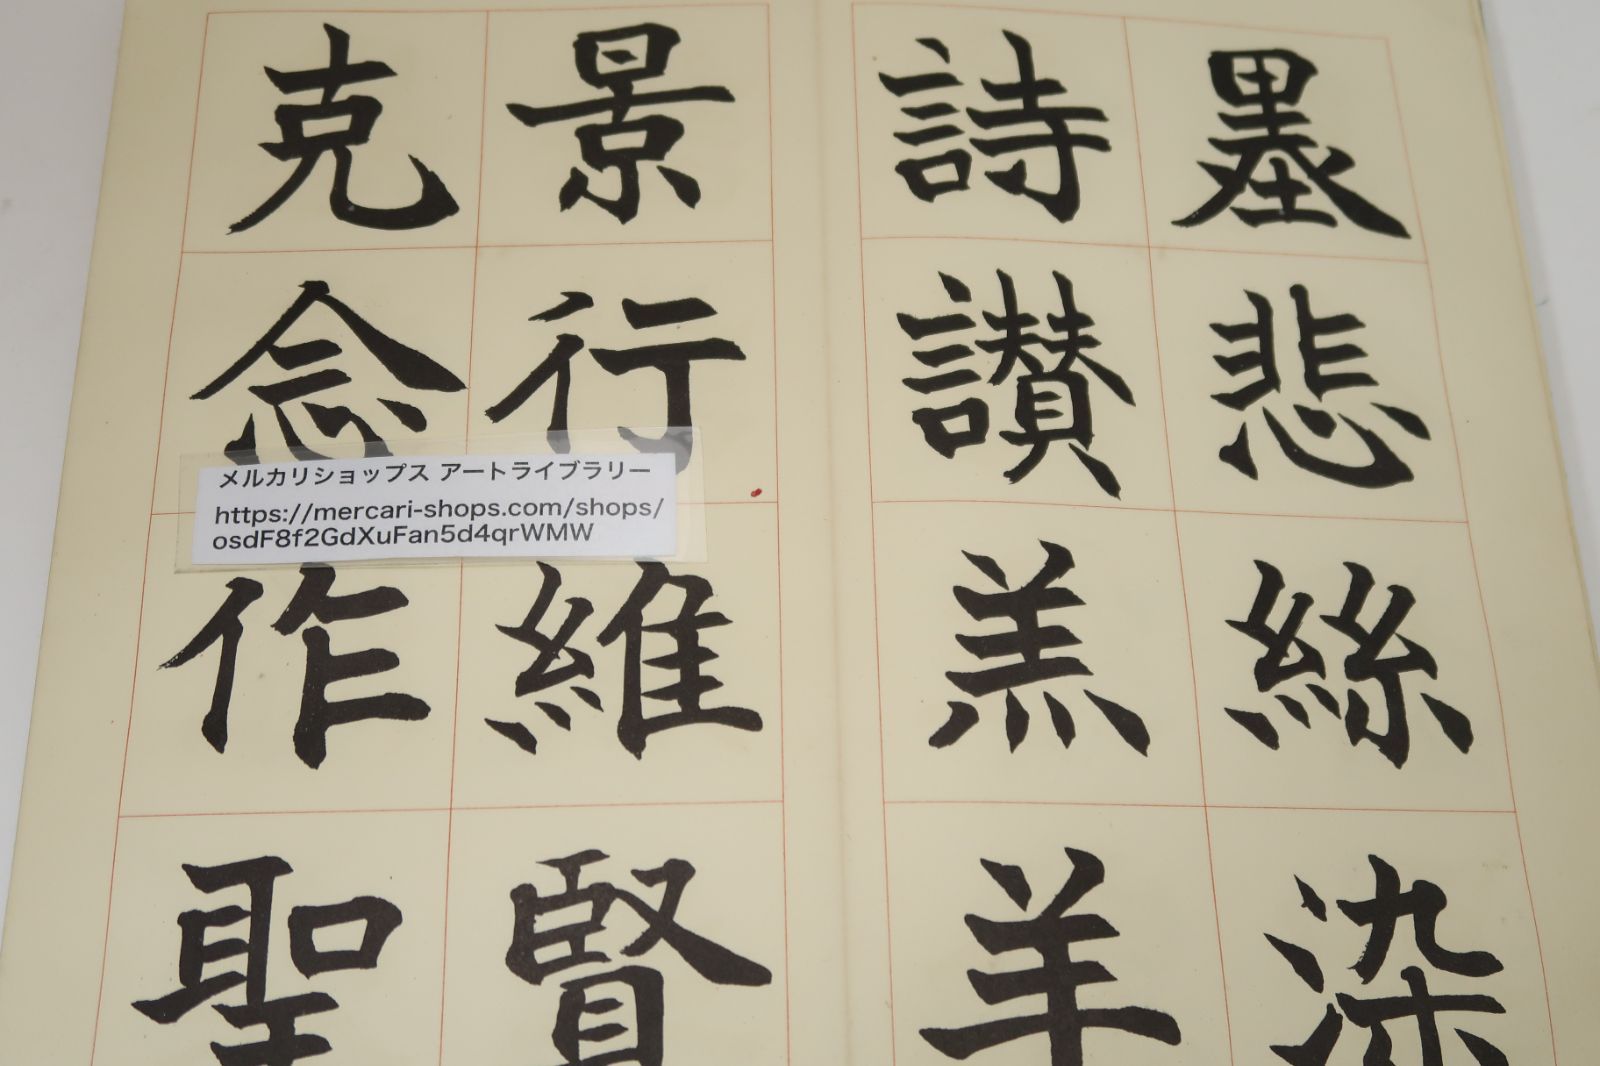 墨悲絲染
詩讃羔羊
景行維賢
克念作聖
メルカリショップス アートライブラリー
https://mercari-shops.com/shops/
osdF8f2GdXuFan5d4qrWMW